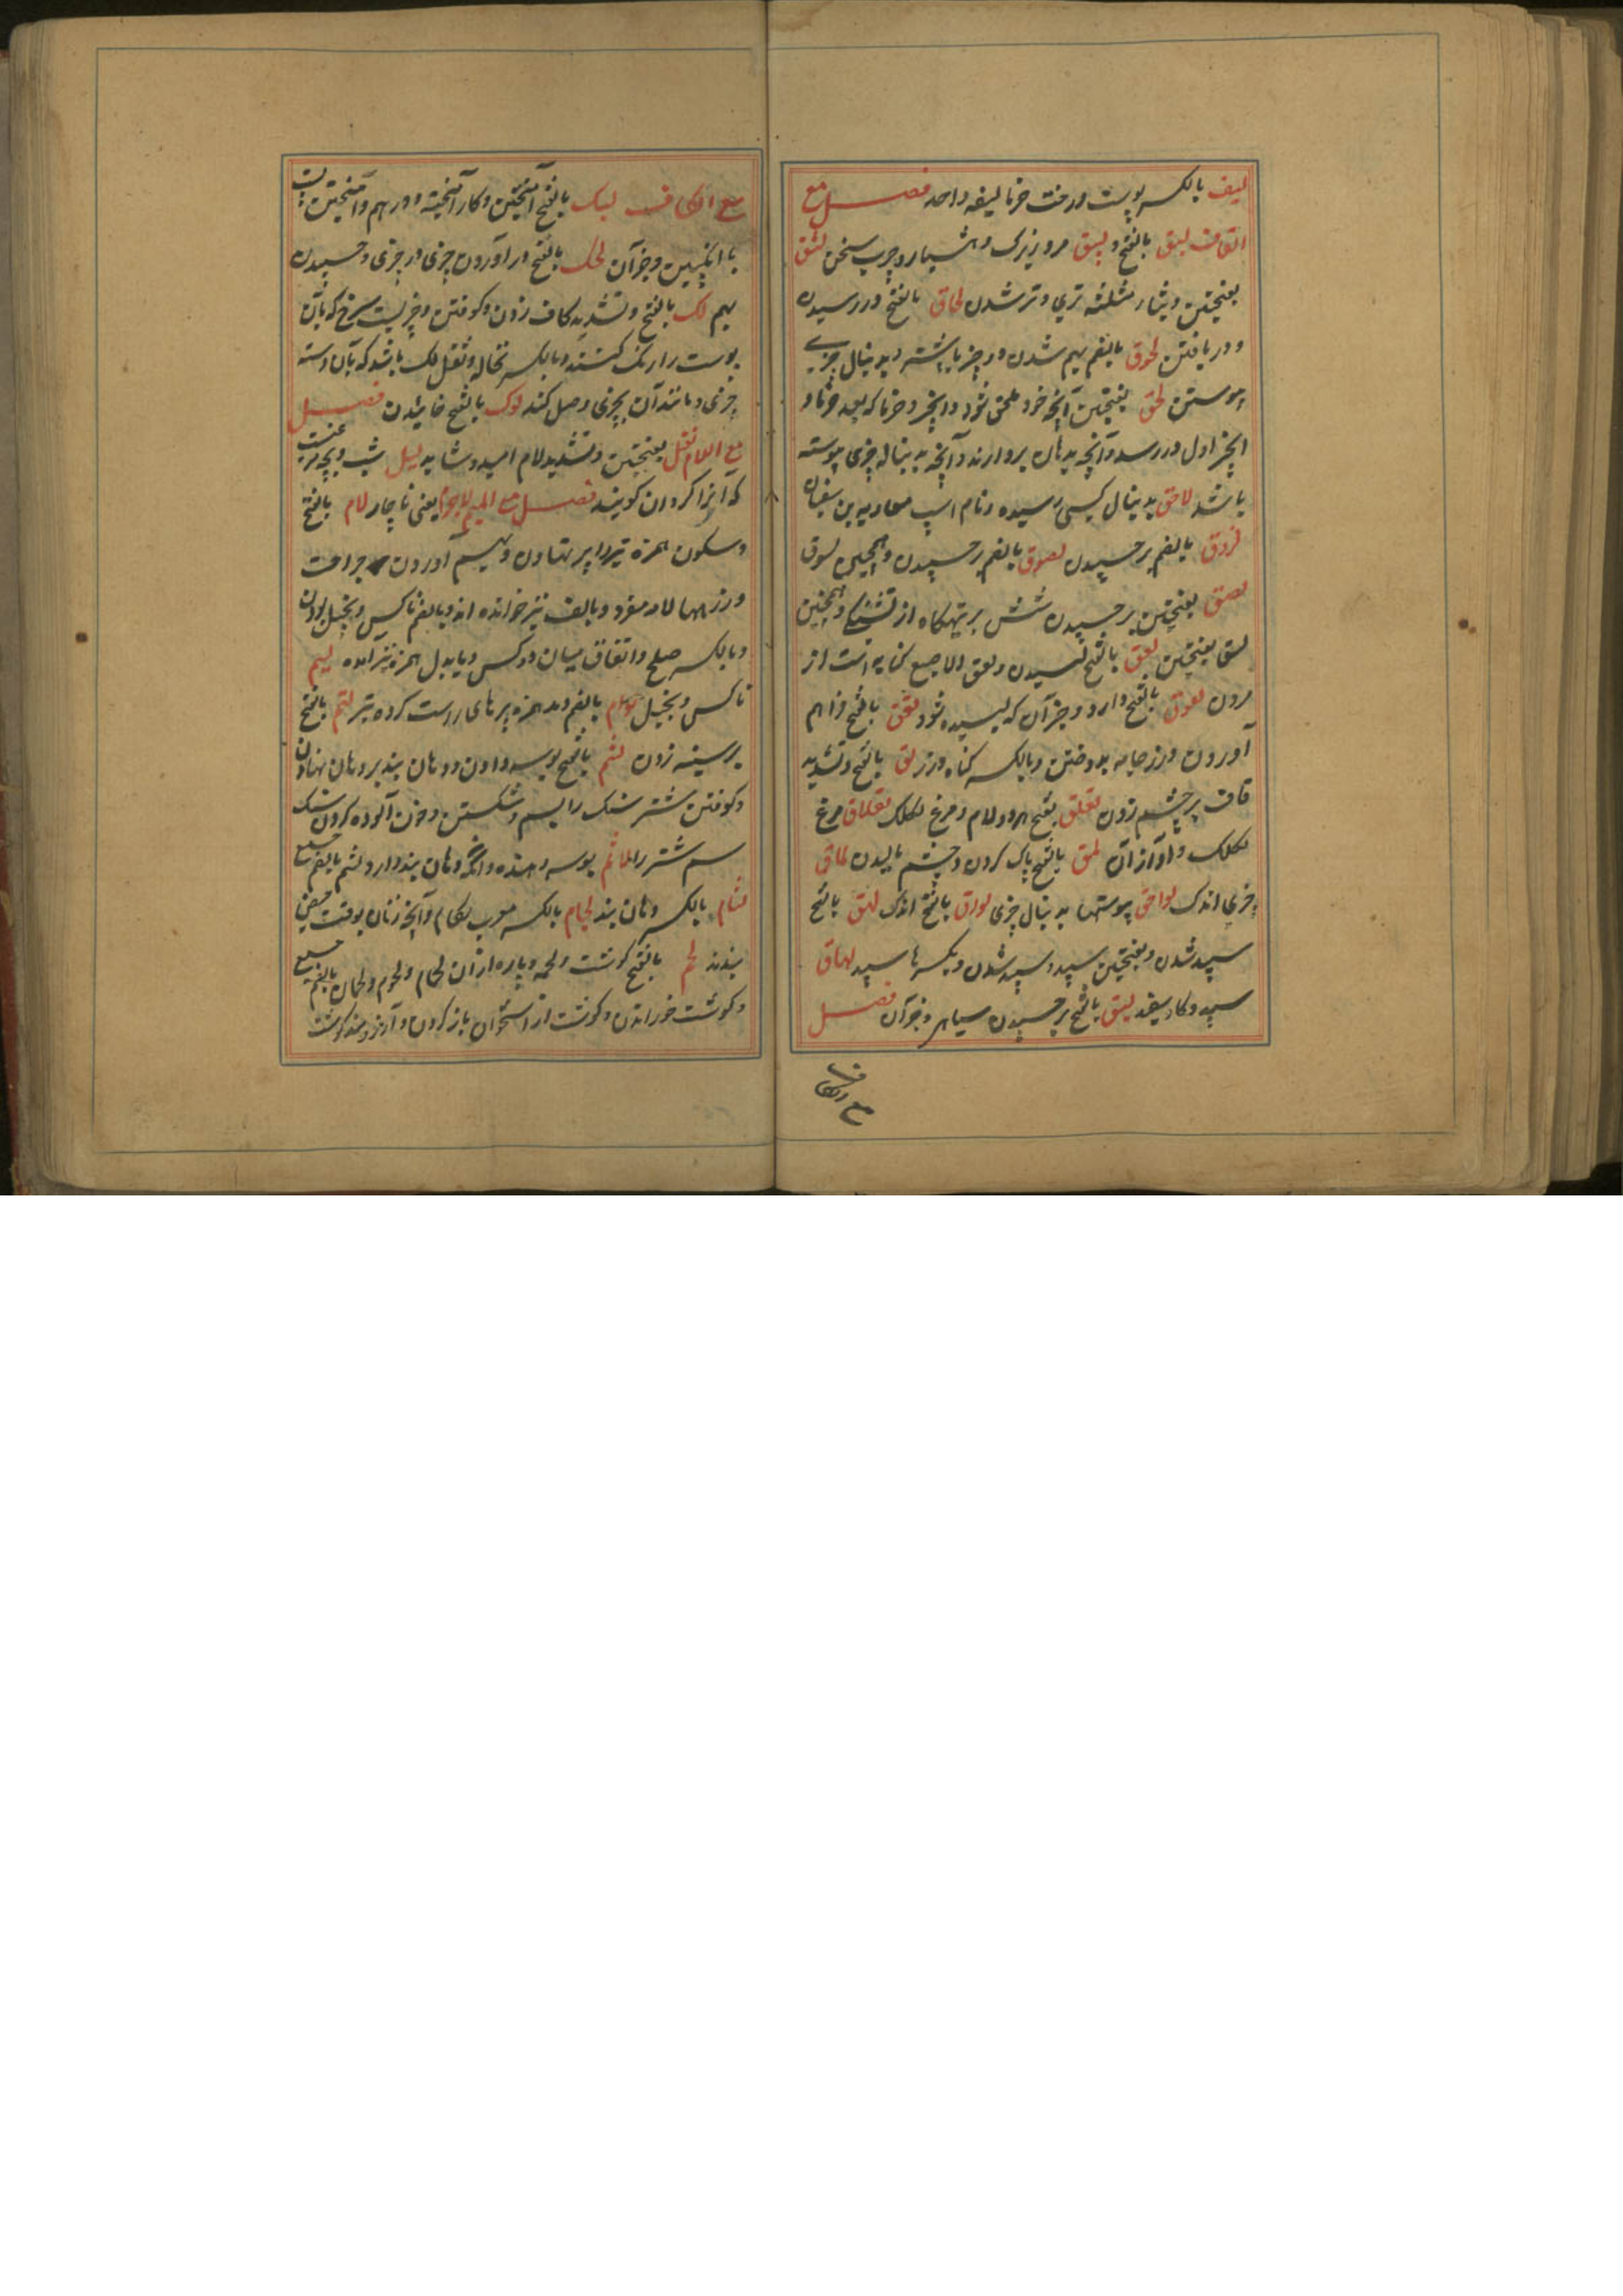 لیف بالکسر پوست درخت خرما لیفه واحد فصل مع
القاف لبق بالفتح و لبیق مرد زیرک و هشیار و چرب سخن لثق
بفتحتین و بثاء مثلثه تری و تر شدن لحاق بالفتح در رسیدن
و دریافتن لحوق بالضم بهم شدن دو چیز با پشته و بدنبال چیزی
پیوستن لحق بفتحتین آنچه خود ملحق شود و انجیر و خرما که بعد خرما و
انجیر اول در رسد و آنچه بدهان بردارند و آنچه بدنباله چیزی پیوسته
باشد لاحق بدنبال کسی رسیده و نام اسپ معاویه بن سفیان
لزوق بالضم بر چسپیدن لصوق بالضم بر چسپیدن و همچنین لسوق
لصق بفتحتین بر چسپیدن شش بر تهیگاه از تشنگی و همچنین
لسق بفتحتین لعق بالفتح لیسیدن و لعق الاصبع کنایه است از
مردن لعوق بالفتح دارو و جز آن که لیسیده شود لفق بالفتح فراهم
آوردن و درز جامه بدوختن و بالکسر کناه درز لق بالفتح و تشدید
قاف بر چشم زدن لقلق بفتح هر دو لام و مرغ لکلک لقلاق مرغ
لکلک و آواز آن لمق بالفتح پاک کردن و چشم مالیدن لماق
چیزی اندک لواحق پیوستها بدنبال چیزی لواق بالفتح اندک لهق بالفتح
سپید شدن و بفتحتین سپید و سپید شدن و بکسر ها سپید لهاق
سپید و کاو سفید لیق بالفتح بر چسپیدن سیاهی و جز آن فصل
مع الکاف
مع الکاف لبک بالفتح آمیختن و کار آمیخته و در هم و آمیختن پست
با انگبین و جز آن لحک بالفتح در آوردن چیزی در چیزی و چسپیدن
بهم لک بالفتح و تشدید کاف زدن و کوفتن و چیزیست سرخ که بآن
پوست را رنگ کنند و بالکسر نخاله و ثفل لک باشد که بآن دسته
چیزی و مانند آن بچیزی وصل کنند لوک بالفتح خائیدن فصل
مع اللام لعل بفتحتین و تشدید لام امید و شاید لیل شب و بچه مرغیست
که آنرا کروان کویند فصل مع المیم لاجرم یعنی ناچار لام بالفتح
و سکون همزه تیر را پر نهادن و بهم آوردن جراحت
و زرهها لامه مفرد و بالف نیز خوانده اند و بالضم ناکس و بخیل بودن
و بالکسر صلح و اتفاق میان دو کس و بابدل همزه نیز آمده لئیم
ناکس و بخیل لوام بالضم و مد همزه پرهای راست کرده تیر لتم بالفتح
بر سینه زدن لثم بالفتح بوسه دادن و دهان بند بر دهان نهادن
و کوفتن شتر سنک را بسم و شکستن و خون آلوده کردن سنک
سم شتر را لاثم بوسه دهنده و آنکه دهان بند دارد لثم بالضم جمع
لثام بالکسر دهان بند لجام بالکسر معرب لکام و آنچه زنان بوقت حیض
بندند لحم بالفتح کوشت و لحمه و پاره از آن لحام و لحوم و لحمان بالضم جمع
و کوشت خوراندن و کوشت از استخوان باز کردن و آرزومند کوشت